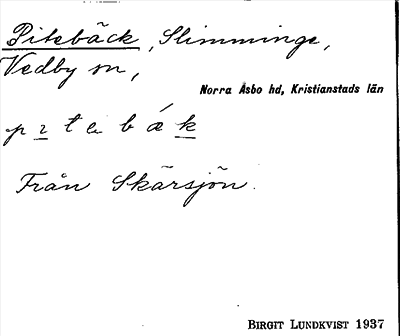 Pitebäck, Slimminge,
Vedby sn,
Norra Åsbo hd, Kristianstads län
Från Skärsjön.
BIRGIT LUNDKVIST 1937